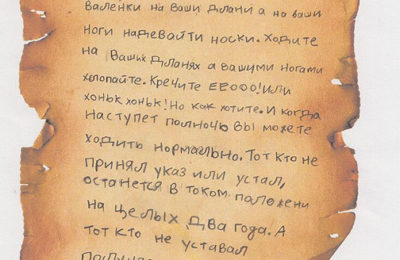 валенки на ваши длани а на ваши
ноги надевайти носки. Ходите
на Ваших дланях а вашими ногами
хлопайте. Кречите ЕЕООО! или
хоньк хоньк! Но как хотите. И когда
наступет полночь вы можете
ходить нормально. Тот кто не
принял указ или устал,
останется в таком положени
на целых два года. А
тот кто не уставал